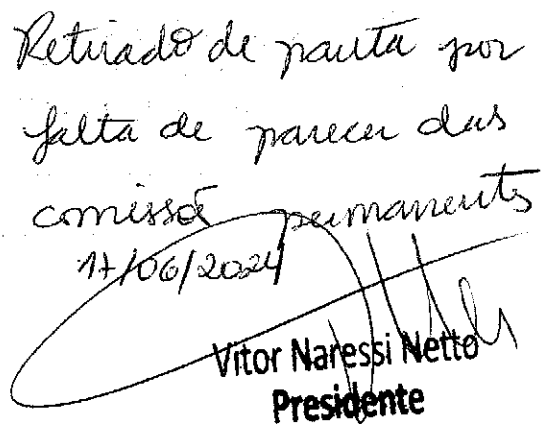 Retirado de pauta por
falta de parecer das
comissõ permanentes
17/06/2024
Vitor Naressi Netto
Presidente